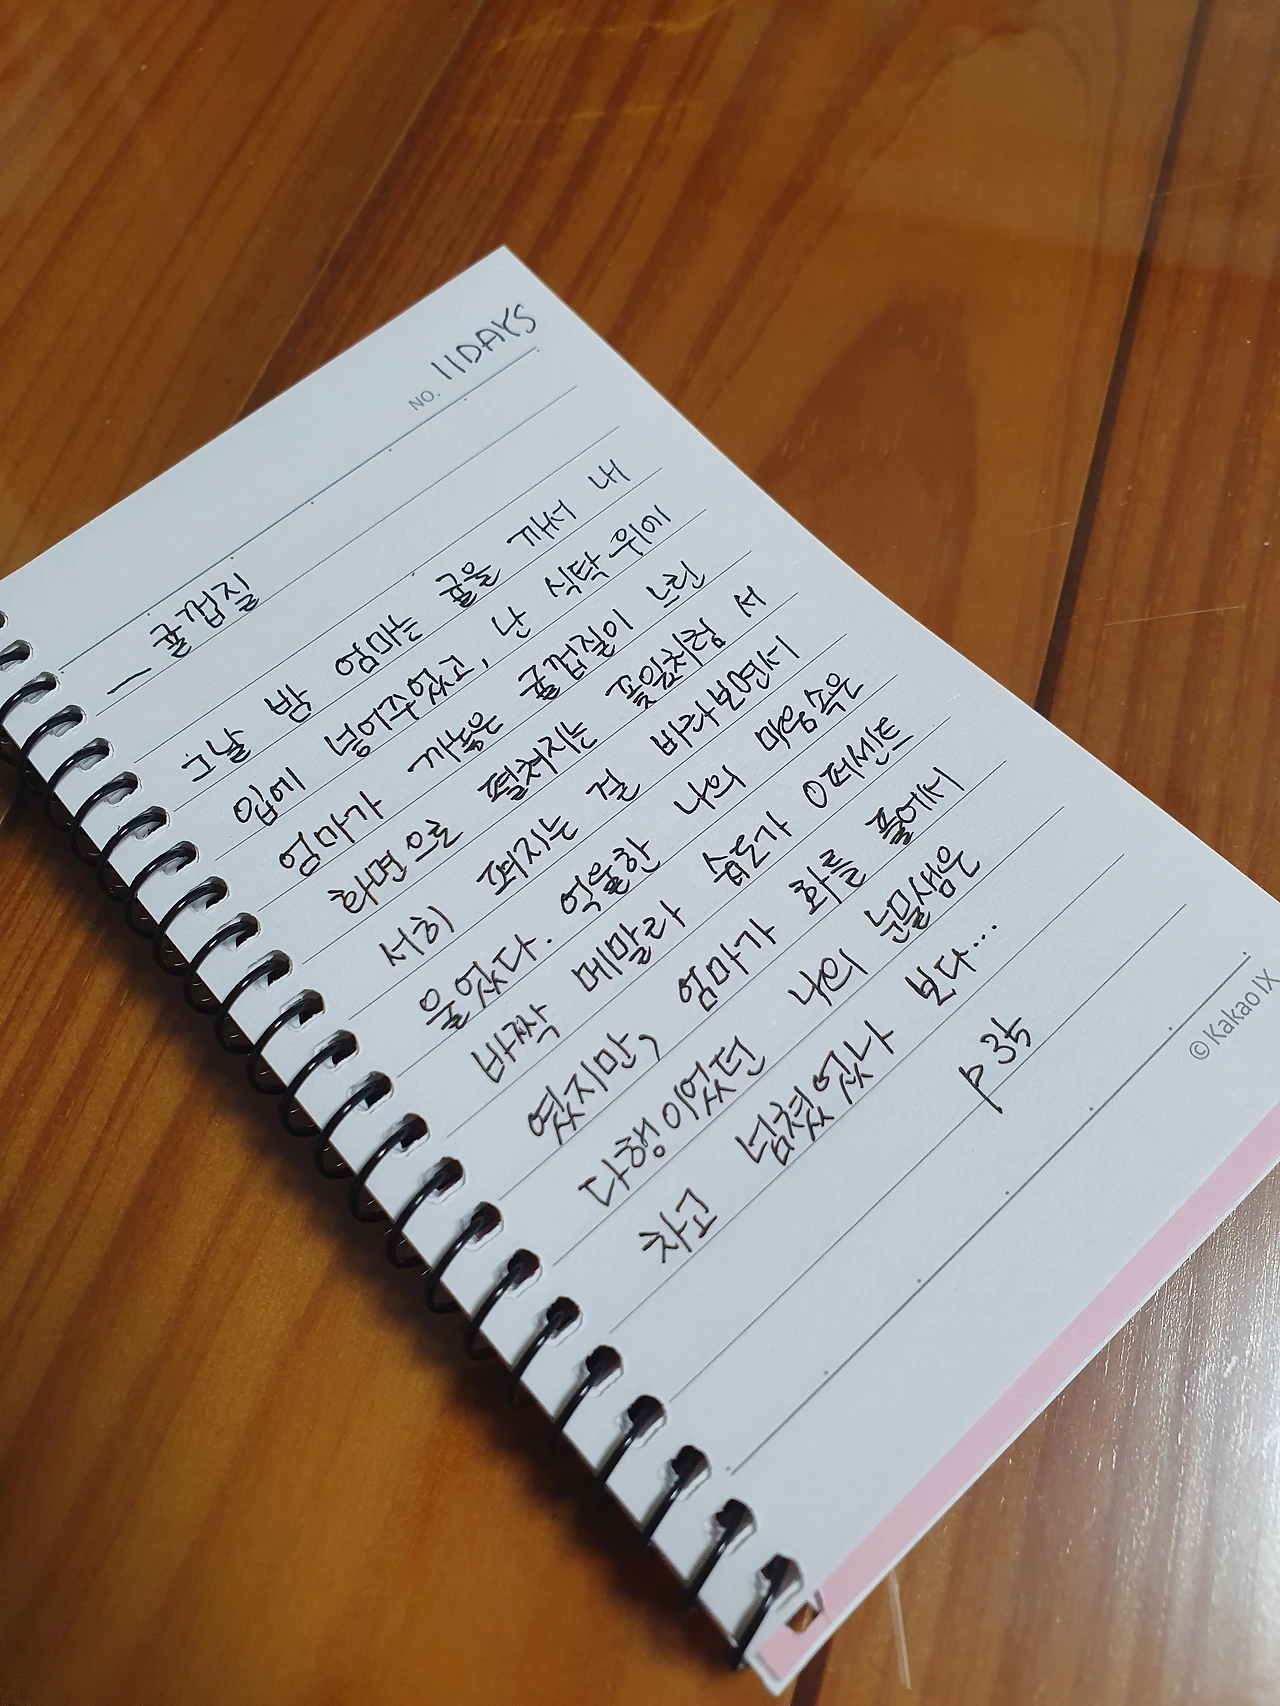 NO. 11DAYS
— 귤껍질
그날 밤 엄마는 귤을 까서 내
입에 넣어주었고, 난 식탁 위에
엄마가 까놓은 귤껍질이 느린
화면으로 펼쳐지는 꽃잎처럼 서
서히 펴지는 걸 바라보면서
울었다. 억울한 나의 마음속은
바짝 메말라 습도가 0퍼센트
였지만, 엄마가 화를 풀어서
다행이었던 나의 눈물샘은
차고 넘쳤었나 보다...
p 35
© Kakao IX